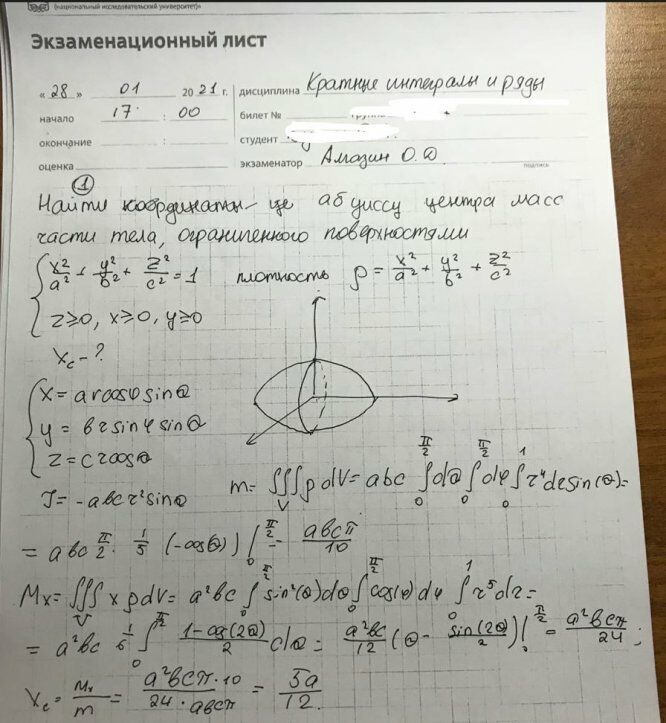 (национальный исследовательский университет)»
Экзаменационный лист
« 28 » 01 2021 г. дисциплина Кратные интегралы и ряды
начало 17 : 00 билет №
окончание : студент
оценка экзаменатор Амозин О.Д. подпись
①
Найти абциссу центра масс
части тела, ограниченного поверхностями
{ x²/a² + y²/b² + z²/c² = 1 плотность ρ = x²/a² + y²/b² + z²/c²
z≥0, x≥0, y≥0
Xc - ?
{ x = a r cosφ sinθ
y = b r sinφ sinθ
z = c r cosθ
J = -abc r² sinθ m = ∭_V ρ dV = abc ∫_0^{π/2} dθ ∫_0^{π/2} dφ ∫_0^1 r⁴ dr sin(θ) =
= abc π/2 · 1/5 (-cosθ) |_0^{π/2} = abcπ/10
Mx = ∭_V x ρ dV = a²bc ∫_0^{π/2} sin²(θ) dθ ∫_0^{π/2} cos(φ) dφ ∫_0^1 r⁵ dr =
= a²bc 1/6 ∫_0^{π/2} (1-cos(2θ))/2 dθ = a²bc/12 (θ - sin(2θ)/2) |_0^{π/2} = a²bcπ/24 ;
Xc = Mx/m = a²bcπ·10/24·abcπ = 5a/12.